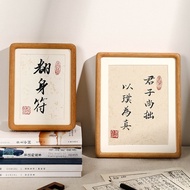 翻身符
君子尚拙
以璞為真